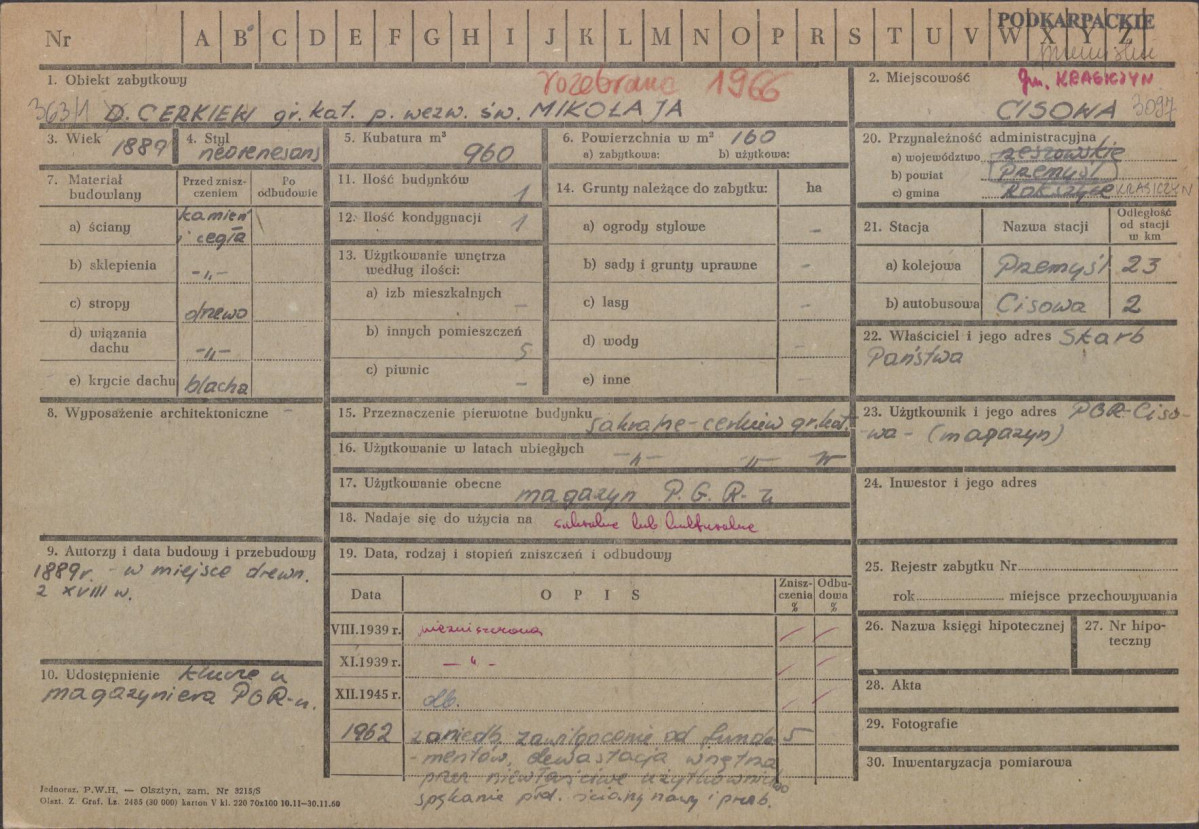 PODKARPACKIE
Nr A B C D E F G H I J K L M N O P R S T U V W X Y Z
1. Obiekt zabytkowy
rozebrana 1966
3631/1 D. CERKIEW gr. kat. p. wezw. św. MIKOŁAJA
2. Miejscowość
gm. KRASICZYN
CISOWA 3097
3. Wiek 1889
4. Styl neorenesans
5. Kubatura m³ 960
6. Powierzchnia w m² 160
a) zabytkowa: b) użytkowa:
7. Materiał budowlany
Przed znisz-
czeniem
Po
odbudowie
a) ściany kamień
i cegła
b) sklepienia -„-
c) stropy drewo
d) wiązania
dachu -„-
e) krycie dachu blacha
8. Wyposażenie architektoniczne -
9. Autorzy i data budowy i przebudowy
1889r. - w miejsce drewn.
z XVIII w.
10. Udostępnienie klucze u
magazyniera PGR-u.
11. Ilość budynków 1
12. Ilość kondygnacji 1
13. Użytkowanie wnętrza
według ilości:
a) izb mieszkalnych -
b) innych pomieszczeń 5
c) piwnic -
14. Grunty należące do zabytku: ha
a) ogrody stylowe -
b) sady i grunty uprawne -
c) lasy -
d) wody -
e) inne -
15. Przeznaczenie pierwotne budynku sakralne - cerkiew gr. kat.
16. Użytkowanie w latach ubiegłych -„- „ „
17. Użytkowanie obecne magazyn P.G.R-u
18. Nadaje się do użycia na sakralne lub kulturalne
19. Data, rodzaj i stopień zniszczeń i odbudowy
Data O P I S Znisz-
czenia
% Odbu-
dowa
%
VIII.1939 r. niezniszczona / /
XI.1939 r. - „ - / /
XII.1945 r. db. / /
1962 zaniedb. zawilgocenie od funda- 5
-mentów, dewastacja wnętrza
przez niewłaściwe użytkownictwo
spękanie płd. ściany nawy i prezb.
20. Przynależność administracyjna
a) województwo rzeszowskie
b) powiat Przemyśl
c) gmina Rokszyce KRASICZYN
21. Stacja Nazwa stacji Odległość
od stacji
w km
a) kolejowa Przemyśl 23
b) autobusowa Cisowa 2
22. Właściciel i jego adres Skarb
Państwa
23. Użytkownik i jego adres PGR-Ciso-
-wa - (magazyn)
24. Inwestor i jego adres
25. Rejestr zabytku Nr
rok miejsce przechowywania
26. Nazwa księgi hipotecznej
27. Nr hipo-
teczny
28. Akta
29. Fotografie
30. Inwentaryzacja pomiarowa
Jednoraz. P.W.H. — Olsztyn, zam. Nr 2215/S
Olszt. Z. Graf. Lz. 2465 (30 000) karton V kl. 220 70x100 10.11-30.11.60